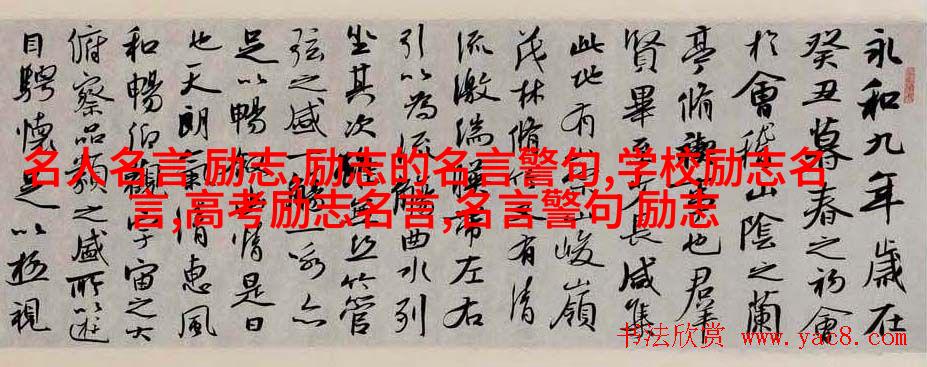 永和九年歲在
癸丑暮春之初會
於會稽山陰之蘭
亭脩禊事也群
賢畢至少長咸集
此地有崇山峻嶺
茂林脩竹又有清
流激湍暎帶左右
引以為流觴曲水列
坐其次雖無絲竹管
弦之盛一觴一詠亦
足以暢敘幽情是日
也天朗氣清惠風
和暢仰觀宇宙之大
俯察品類之盛所以遊
目騁懷足以極視
名人名言 励志,励志的名言警句,学校励志名
言,高考励志名言,名言警句 励志
书法欣赏 www.yac8.com